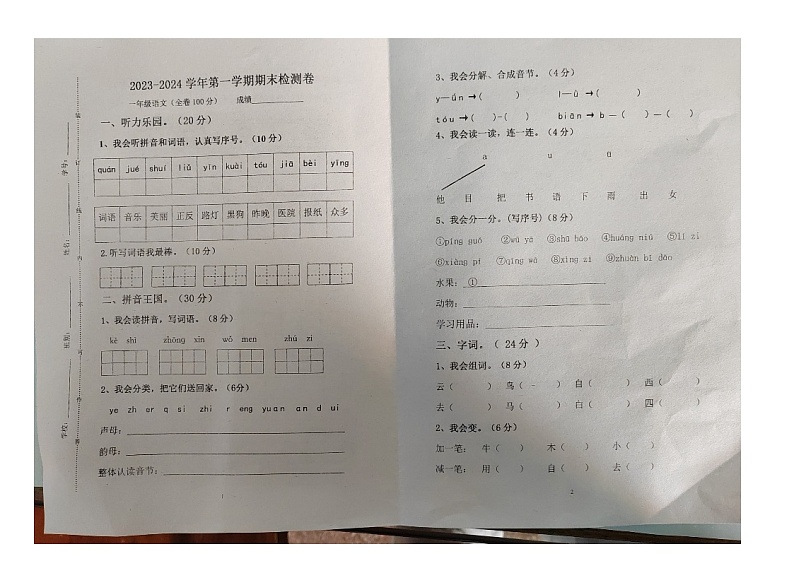 2023-2024 学年第一学期期末检测卷
一年级语文（全卷100分） 成绩____________
一、听力乐园。（20 分）
1、我会听拼音和词语，认真写序号。（10 分）
quán jué shuí liǔ yīn kuài tóu jiā bèi yīng
词语 音乐 美丽 正反 路灯 黑狗 昨晚 医院 报纸 众多
2.听写词语我最棒。（10 分）
二、拼音王国。（30 分）
1、我会读拼音，写词语。（8 分）
kè shí zhōng xīn wǒ men zhú zi
2、我会分类，把它们送回家。（6分）
ye zh er q si zhi r eng yuan an d ui
声母：
韵母：
整体认读音节：
1
学校： 班级： 姓名： 学号：
3、我会分解、合成音节。（4 分）
y—ún →( ) l—ǖ →( )
tóu →( )-( ) biān → b —( )—( )
4、我会读一读，连一连。（4 分）
a u ü
他 目 把 书 语 下 雨 出 女
5、我会分一分。(写序号)（8 分）
①píng guǒ ②wū yā ③shū bāo ④huáng niú ⑤lí zi
⑥xiàng pí ⑦qīng wā ⑧xìng zi ⑨zhuàn bǐ dāo
水果：①
动物：
学习用品：
三、字词。（ 24 分 ）
1、我会组词。（8 分）
云（ ） 鸟（ ） 自（ ） 西（ ）
去（ ） 马（ ） 白（ ） 四（ ）
2、我会变。（6 分）
加一笔： 牛（ ） 木（ ） 小（ ）
减一笔： 用（ ） 自（ ） 去（ ）
2